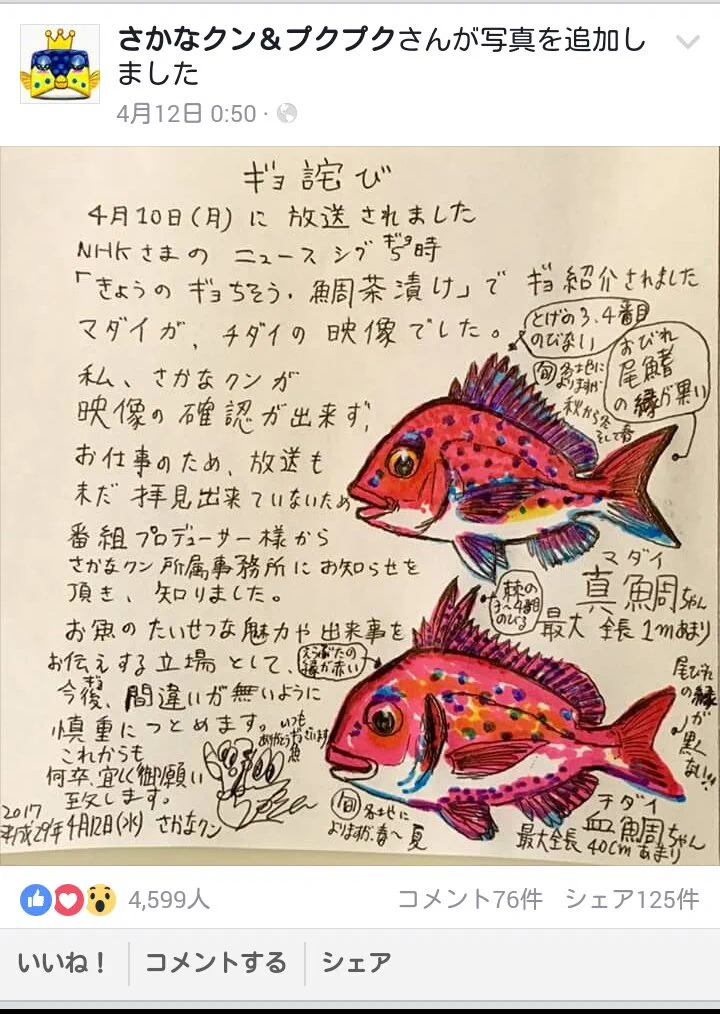 さかなクン＆プクプクさんが写真を追加し
ました
4月12日 0:50
ギョ詫び
4月10日(月)に 放送されました
NHKさまの ニュース シブ5時
ギョ
「きょうの ギョちそう・鯛茶漬け」で ギョ紹介されました
マダイが、チダイの映像でした。
私、さかなクンが
映像の確認が出来ず、
お仕事のため、放送も
未だ 拝見出来ていないため
番組プロデューサー様から
さかなクン所属事務所にお知らせを
頂き、知りました。
お魚の たいせつな魅力や出来事を
お伝えする立場として、
今後、間違いが無いように
ギョ
慎重につとめます。
これからも
何卒、宜しく御願い
致します。
2017
平成29年4月12日(水) さかなクン
いつも
ありがとうギョざいます
魚
とげの3、4番目
のびない
おびれ
尾鰭
の縁が黒い
旬 各地に
よりますが
秋から冬
そして春
マダイ
真鯛ちゃん
最大 全長 1mあまり
棘の
3〜4番目
のびる
えらぶたの
縁が赤い
尾びれ
の縁
が
黒く
ない!!
旬 各地に
よりますが、春〜夏
チダイ
血鯛ちゃん
最大全長 40cmあまり
4,599人
コメント76件 シェア125件
いいね！ コメントする シェア